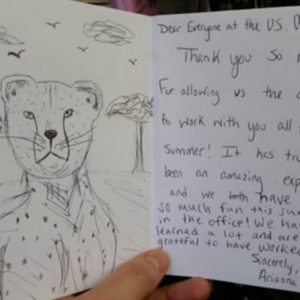 Dear Everyone at the U.S.
Thank you so
For allowing us the
to work with you all
Summer! It has
been an amazing
and we both have
so much fun this
in the office! We
learned a lot and are
grateful to have worked
Sincerely,
Arianna